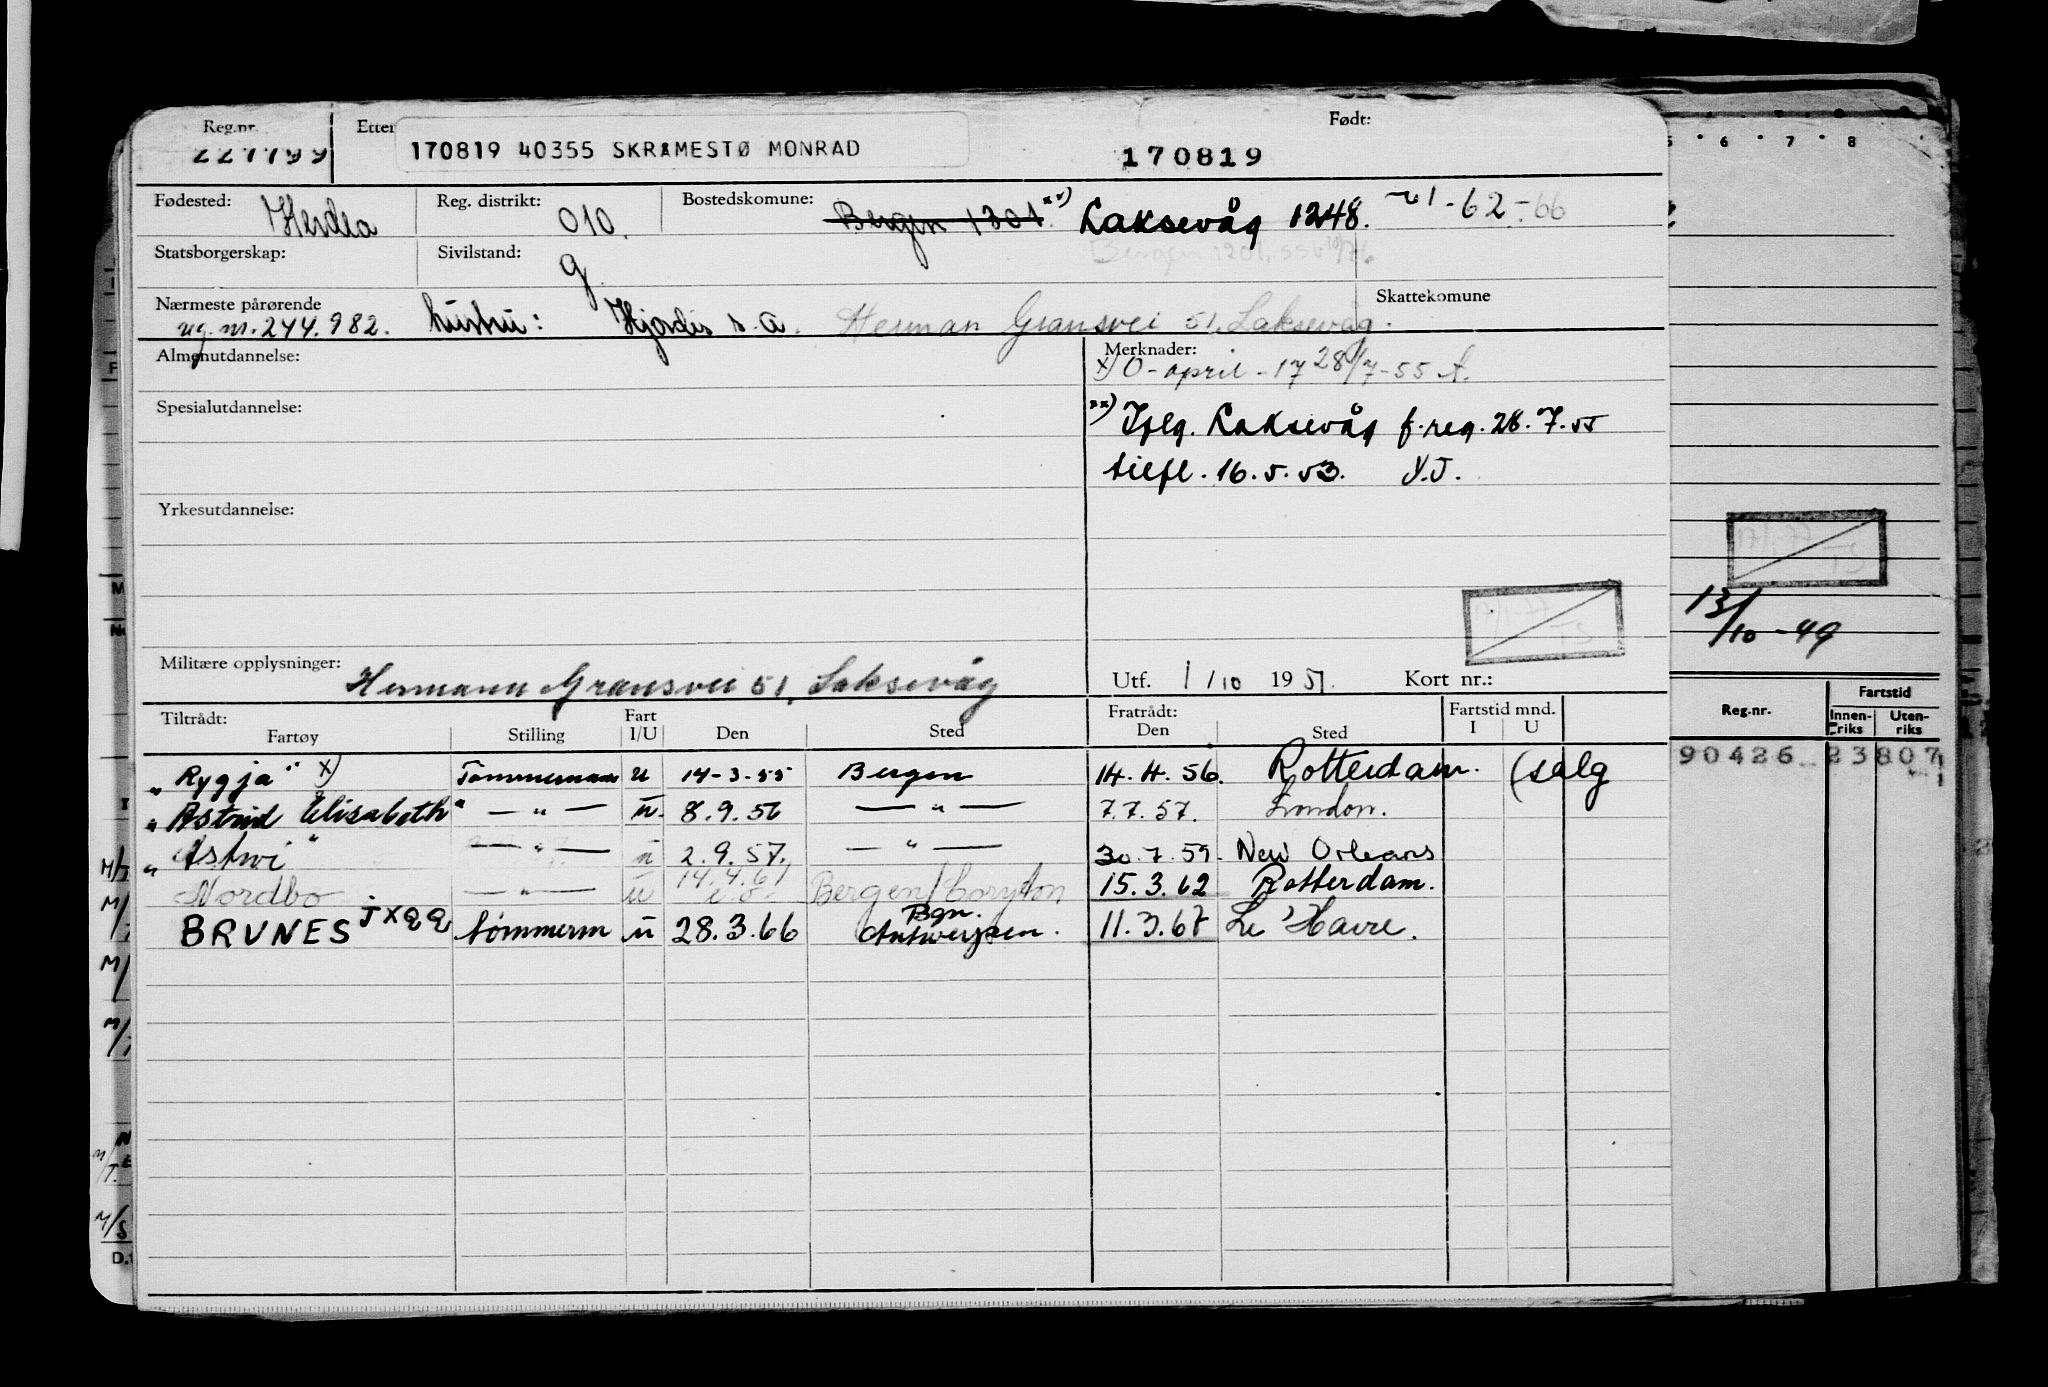 Reg.nr. Etter Født:
170819 40355 SKRAMESTØ MONRAD 170819
Fødested: Herdla Reg. distrikt: 010. Bostedskommune: Bergen 1301 xx) Laksevåg 1248. 61-62-66
Bergen 1201
Statsborgerskap: Sivilstand: g
Nærmeste pårørende Skattekomune
ug. nr. 244.982. hustru: Hjørdis s.a. Herman Gransvei 51, Laksevåg.
Almenutdannelse: Merknader:
x) O-april-17 28/7-55 A.
Spesialutdannelse:
xx) Iflg. Laksevåg f.reg. 28.7.55
tilfl. 16.5.53. V.J.
Yrkesutdannelse:
17/1-77 TS
17/1-77 TS
13/10-49
Militære opplysninger: Hermann Gransvei 51, Laksevåg
Utf. 1/10 1951. Kort nr.:
Tiltrådt: Fart Fratrådt: Fartstid mnd.
Fartøy Stilling I/U Den Sted Den Sted I U
Reg.nr. Fartstid Innenriks Utenriks
"Rygja" x) Tømmermann u 14-3-55 Bergen 14.4.56. Rotterdam. (salg
"Astrid Elisabeth" — " — u. 8.9.56 — " — 7.7.57. London.
"Astwi" — " — u 2.9.57. — " — 30.7.59. New Orleans
Nordbo — " — u 14.4.61 Bergen/Coryton 15.3.62 Rotterdam.
BRUNES JXQQ tømmerm u 28.3.66 Bgn. Antwerpen. 11.3.67 Le Havre.
90426 23 807